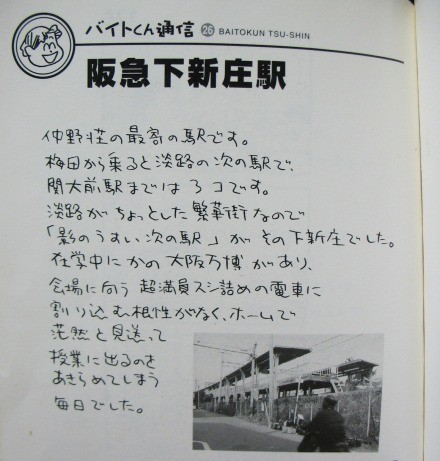 バイトくん通信 26 BAITOKUN TSU-SHIN
阪急下新庄駅
仲野荘の最寄の駅です。
梅田から乗ると淡路の次の駅で、
関大前駅までは3コです。
淡路がちょっとした繁華街なので
「影のうすい次の駅」がその下新庄でした。
在学中にかの大阪万博があり、
会場に向う超満員スシ詰めの電車に
割り込む根性がなく、ホームで
茫然と見送って
授業に出るのを
あきらめてしまう
毎日でした。